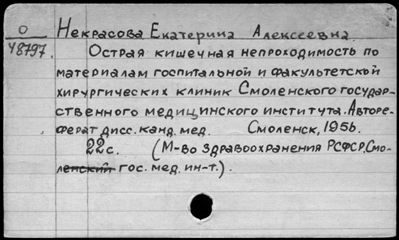 О
48797.
Некрасова Екатерина Алексеевна.
Острая кишечная непроходимость по
материалам госпитальной и факультетской
хирургических клиник Смоленского государ-
ственного медицинского института. Авторе-
ферат дисс. канд. мед. Смоленск, 1956.
22 с. (М-во здравоохранения РСФСР. Смо-
ленский гос. мед. ин-т.).